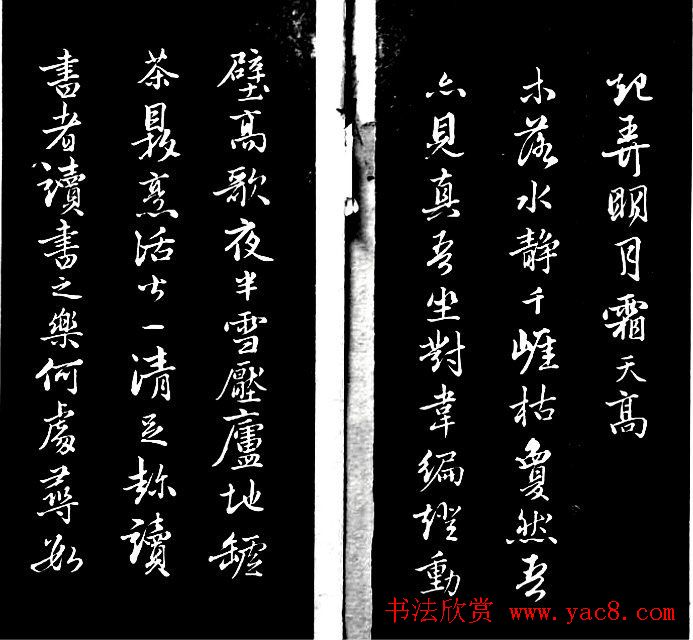 起弄明月霜天高
木落水静千崕枯夐然吾
亦見真吾坐對韋編燈動
壁高歌夜半雪壓廬地罏
茶鼎烹活火一清足称讀
書者讀書之樂何處尋數
书法欣赏 www.yac8.com